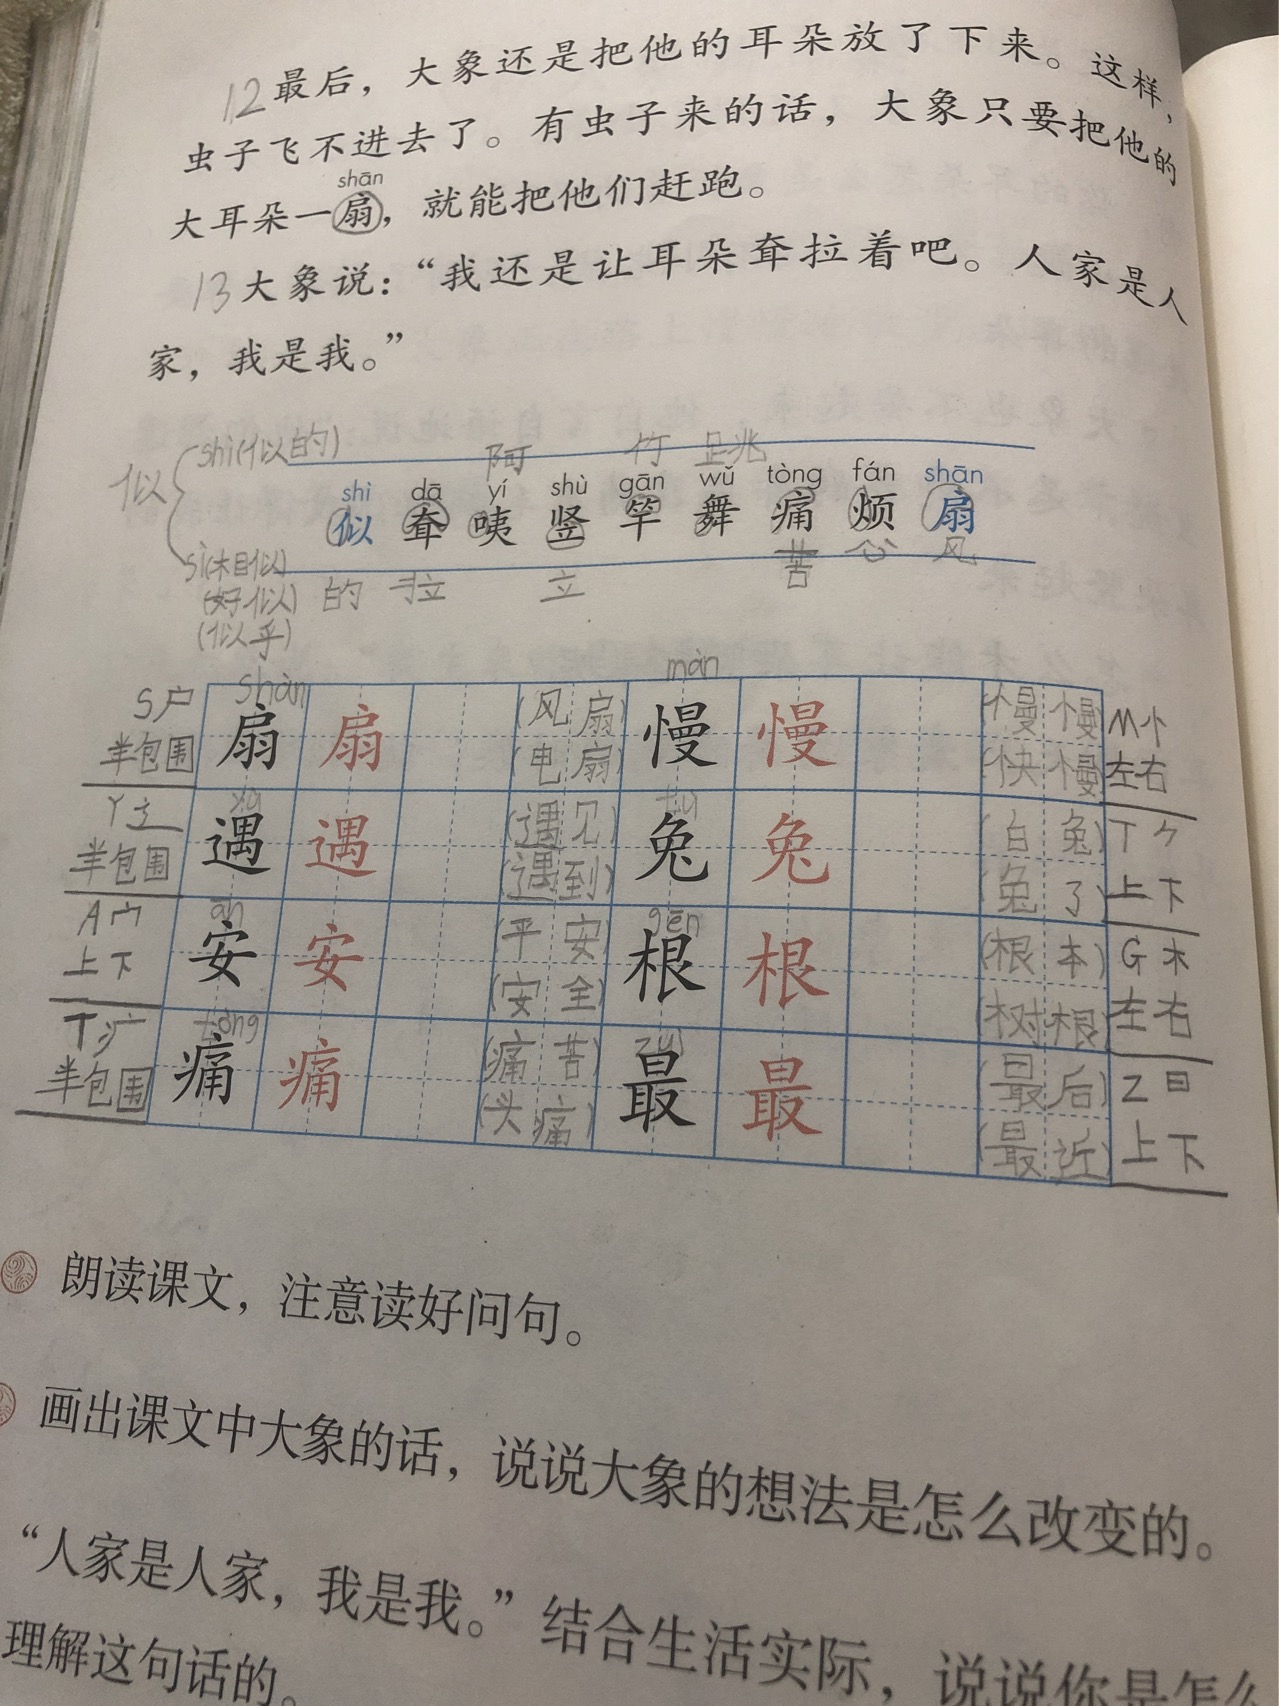 12最后，大象还是把他的耳朵放了下来。这样，
虫子飞不进去了。有虫子来的话，大象只要把他的
shān
大耳朵一扇，就能把他们赶跑。
13大象说：“我还是让耳朵耷拉着吧。人家是人
家，我是我。”
似
shì(似的)
阿 竹 跳
shì dā yí shù gān wǔ tòng fán shān
似 耷 咦 竖 竿 舞 痛 烦 扇
sì(相似)
(好似)
(似乎)
的 拉 立 苦 心 风
shàn màn
S户 扇 扇 (风扇) 慢 慢 (慢慢 M忄
半包围 (电扇) (快慢) 左右
yù tù
Y辶 遇 遇 (遇见) 兔 兔 (白兔) T⺈
半包围 (遇到) (兔了) 上下
ān gēn
A宀 安 安 (平安) 根 根 (根本) G木
上下 (安全) (树根) 左右
tòng zuì
T疒 痛 痛 (痛苦) 最 最 (最后) Z曰
半包围 (头痛) (最近) 上下
朗读课文，注意读好问句。
画出课文中大象的话，说说大象的想法是怎么改变的。
“人家是人家，我是我。”结合生活实际，说说你是怎么
理解这句话的。